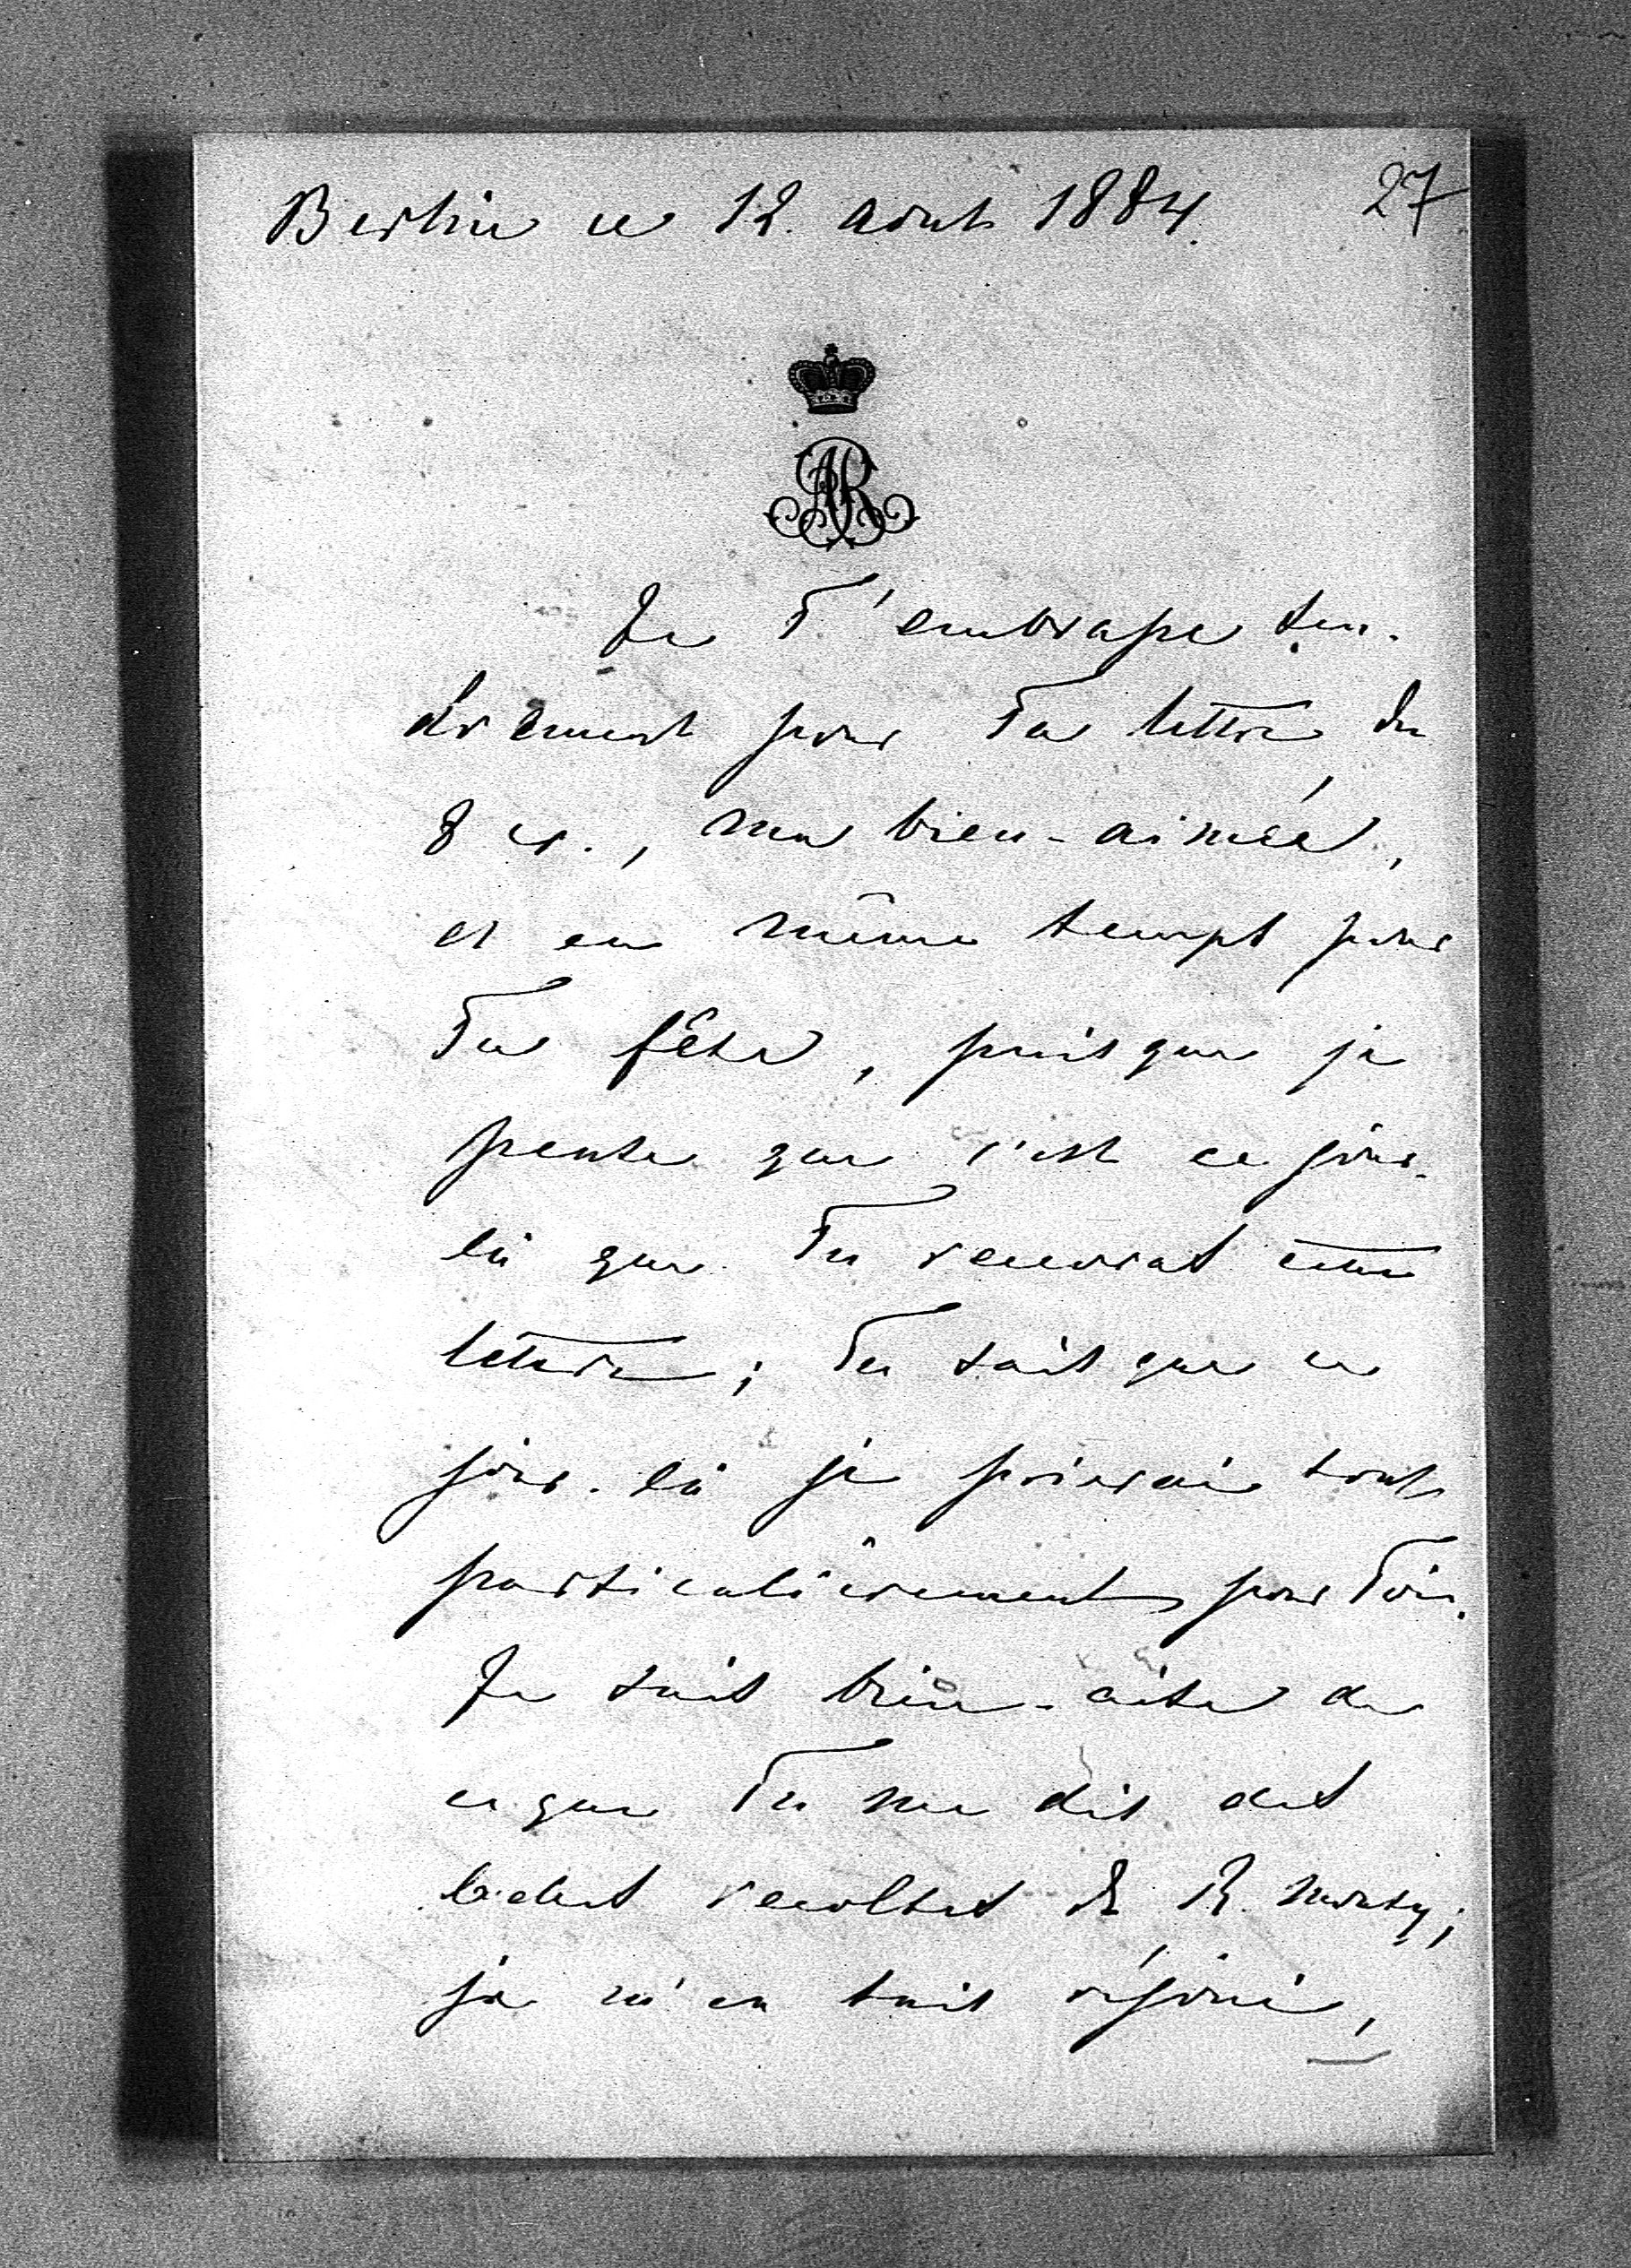 Berlin ce 12. aout 1884.
27
AR
Je T'embrasse ten-
drement pour Ta lettre du
8 cr., ma bien-aimée,
et en même temps pour
Ta fête, puisque je
pense que c'est ce jour-
là que Tu recevras cette
lettre; Tu sais que ce
jour-là je prierai tout
particulièrement pour Toi.
Je suis bien-aise de
ce que Tu me dis des
belles recoltes de
je m'en suis réjoui,